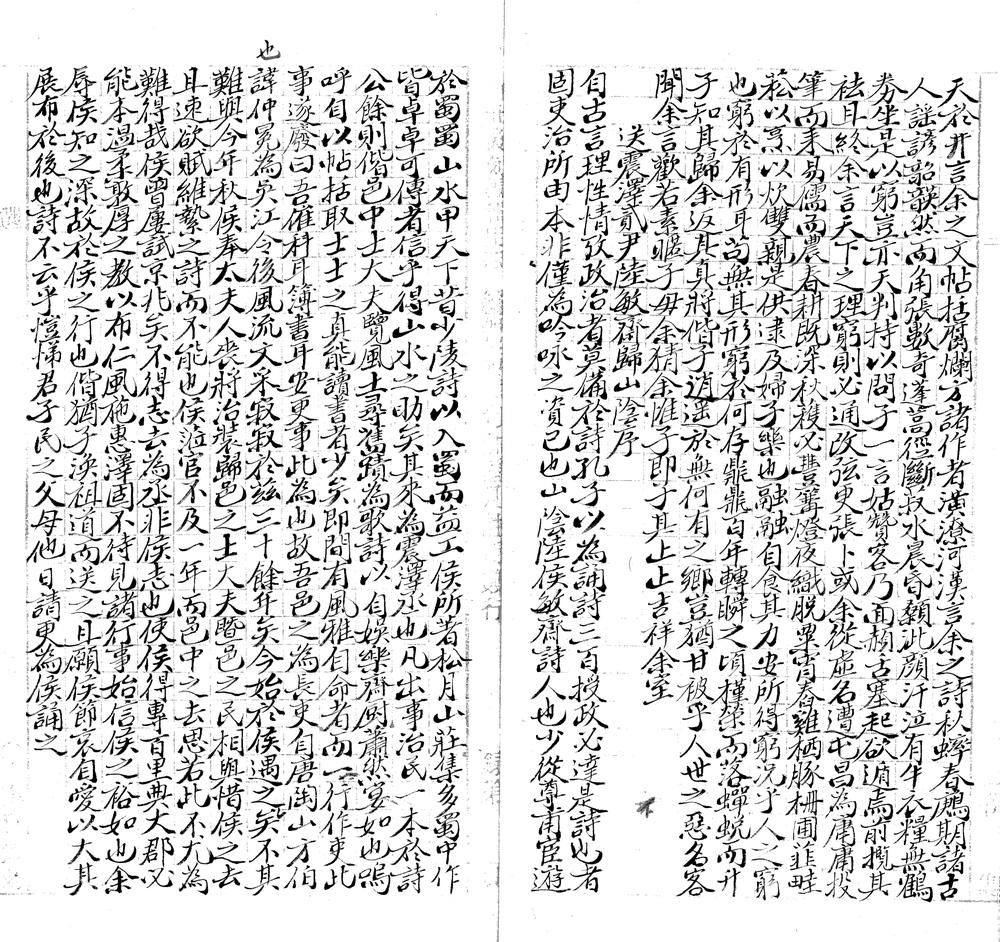 天於井言余之文帖括腐爛方諸作者潢潦河漢言余之詩秋蟀春鴈期諸古
人謠諺詔韺然而角張數奇蓬蒿徑斷叔水晨昏顙泚顏汗泣有牛衣糧無鶴
券坐是以窮豈亦天判持以問子一言姑贊客乃面赪舌塞起欲遁焉前攬其
袪且終余言天下之理窮則必通改弦更張卜或余從虛名遭屯曷為庸庸投
筆而耒易儒而農春耕既深秋穫必豐篝燈夜織脫粟宵舂雞栖豚柵圃韭畦
菘以烹以炊雙親是供逮及婦子樂也融融自食其力安所得窮况乎人之窮
也窮於有形耳苟無其形窮於何存鼎鼎百年轉瞬之頃槿榮而落蟬蛻而升
子知其歸余返其真將偕子逍遥於無何有之鄉豈猶甘被乎人世之惡名客
聞余言歡若素暱子毋余猜余隹子即子其止止吉祥余室
送震澤貳尹陸敏齋歸山陰序
自古言理性情攷政治者莫備於詩孔子以為誦詩三百授政必達是詩也者
固吏治所由本非僅為吟咏之資已也山陰陸侯敏齋詩人也少從尊甫宦遊
於蜀蜀山水甲天下昔少陵詩以入蜀而益工侯所著松月山莊集多蜀中作
皆卓卓可傳者信乎得山水之助矣其來為震澤丞也凡出事治民一本於詩
公餘則偕邑中士大夫覽風土尋舊蹟為歌詩以自娛樂齋厨蕭然宴如也嗚
呼自以帖括取士士之真能讀書者少矣即間有風雅自命者而一行作吏此
事遂廢曰吾催科耳簿書耳安更事此為也故吾邑之為長吏自唐陶山方伯
也
諱仲冕為吳江令後風流文采寂寂於兹三十餘年矣今始於侯遇之矣不其
難與今年秋侯奉太夫人喪將治裝歸邑之士大夫暨邑之民相與惜侯之去
且速欲賦維縶之詩而不能也侯涖官不及一年而邑中之去思若此不尤為
難得哉侯曾屢試京兆矣不得志去為丞非侯志也使侯得專百里典大郡必
能本溫柔敦厚之教以布仁風施惠澤固不待見諸行事始信侯之裕如也余
辱侯知之深故於侯之行也偕猶子渙祖道而送之且願侯節哀自愛以大其
展布於後也詩不云乎愷悌君子民之父母他日請更為侯誦之